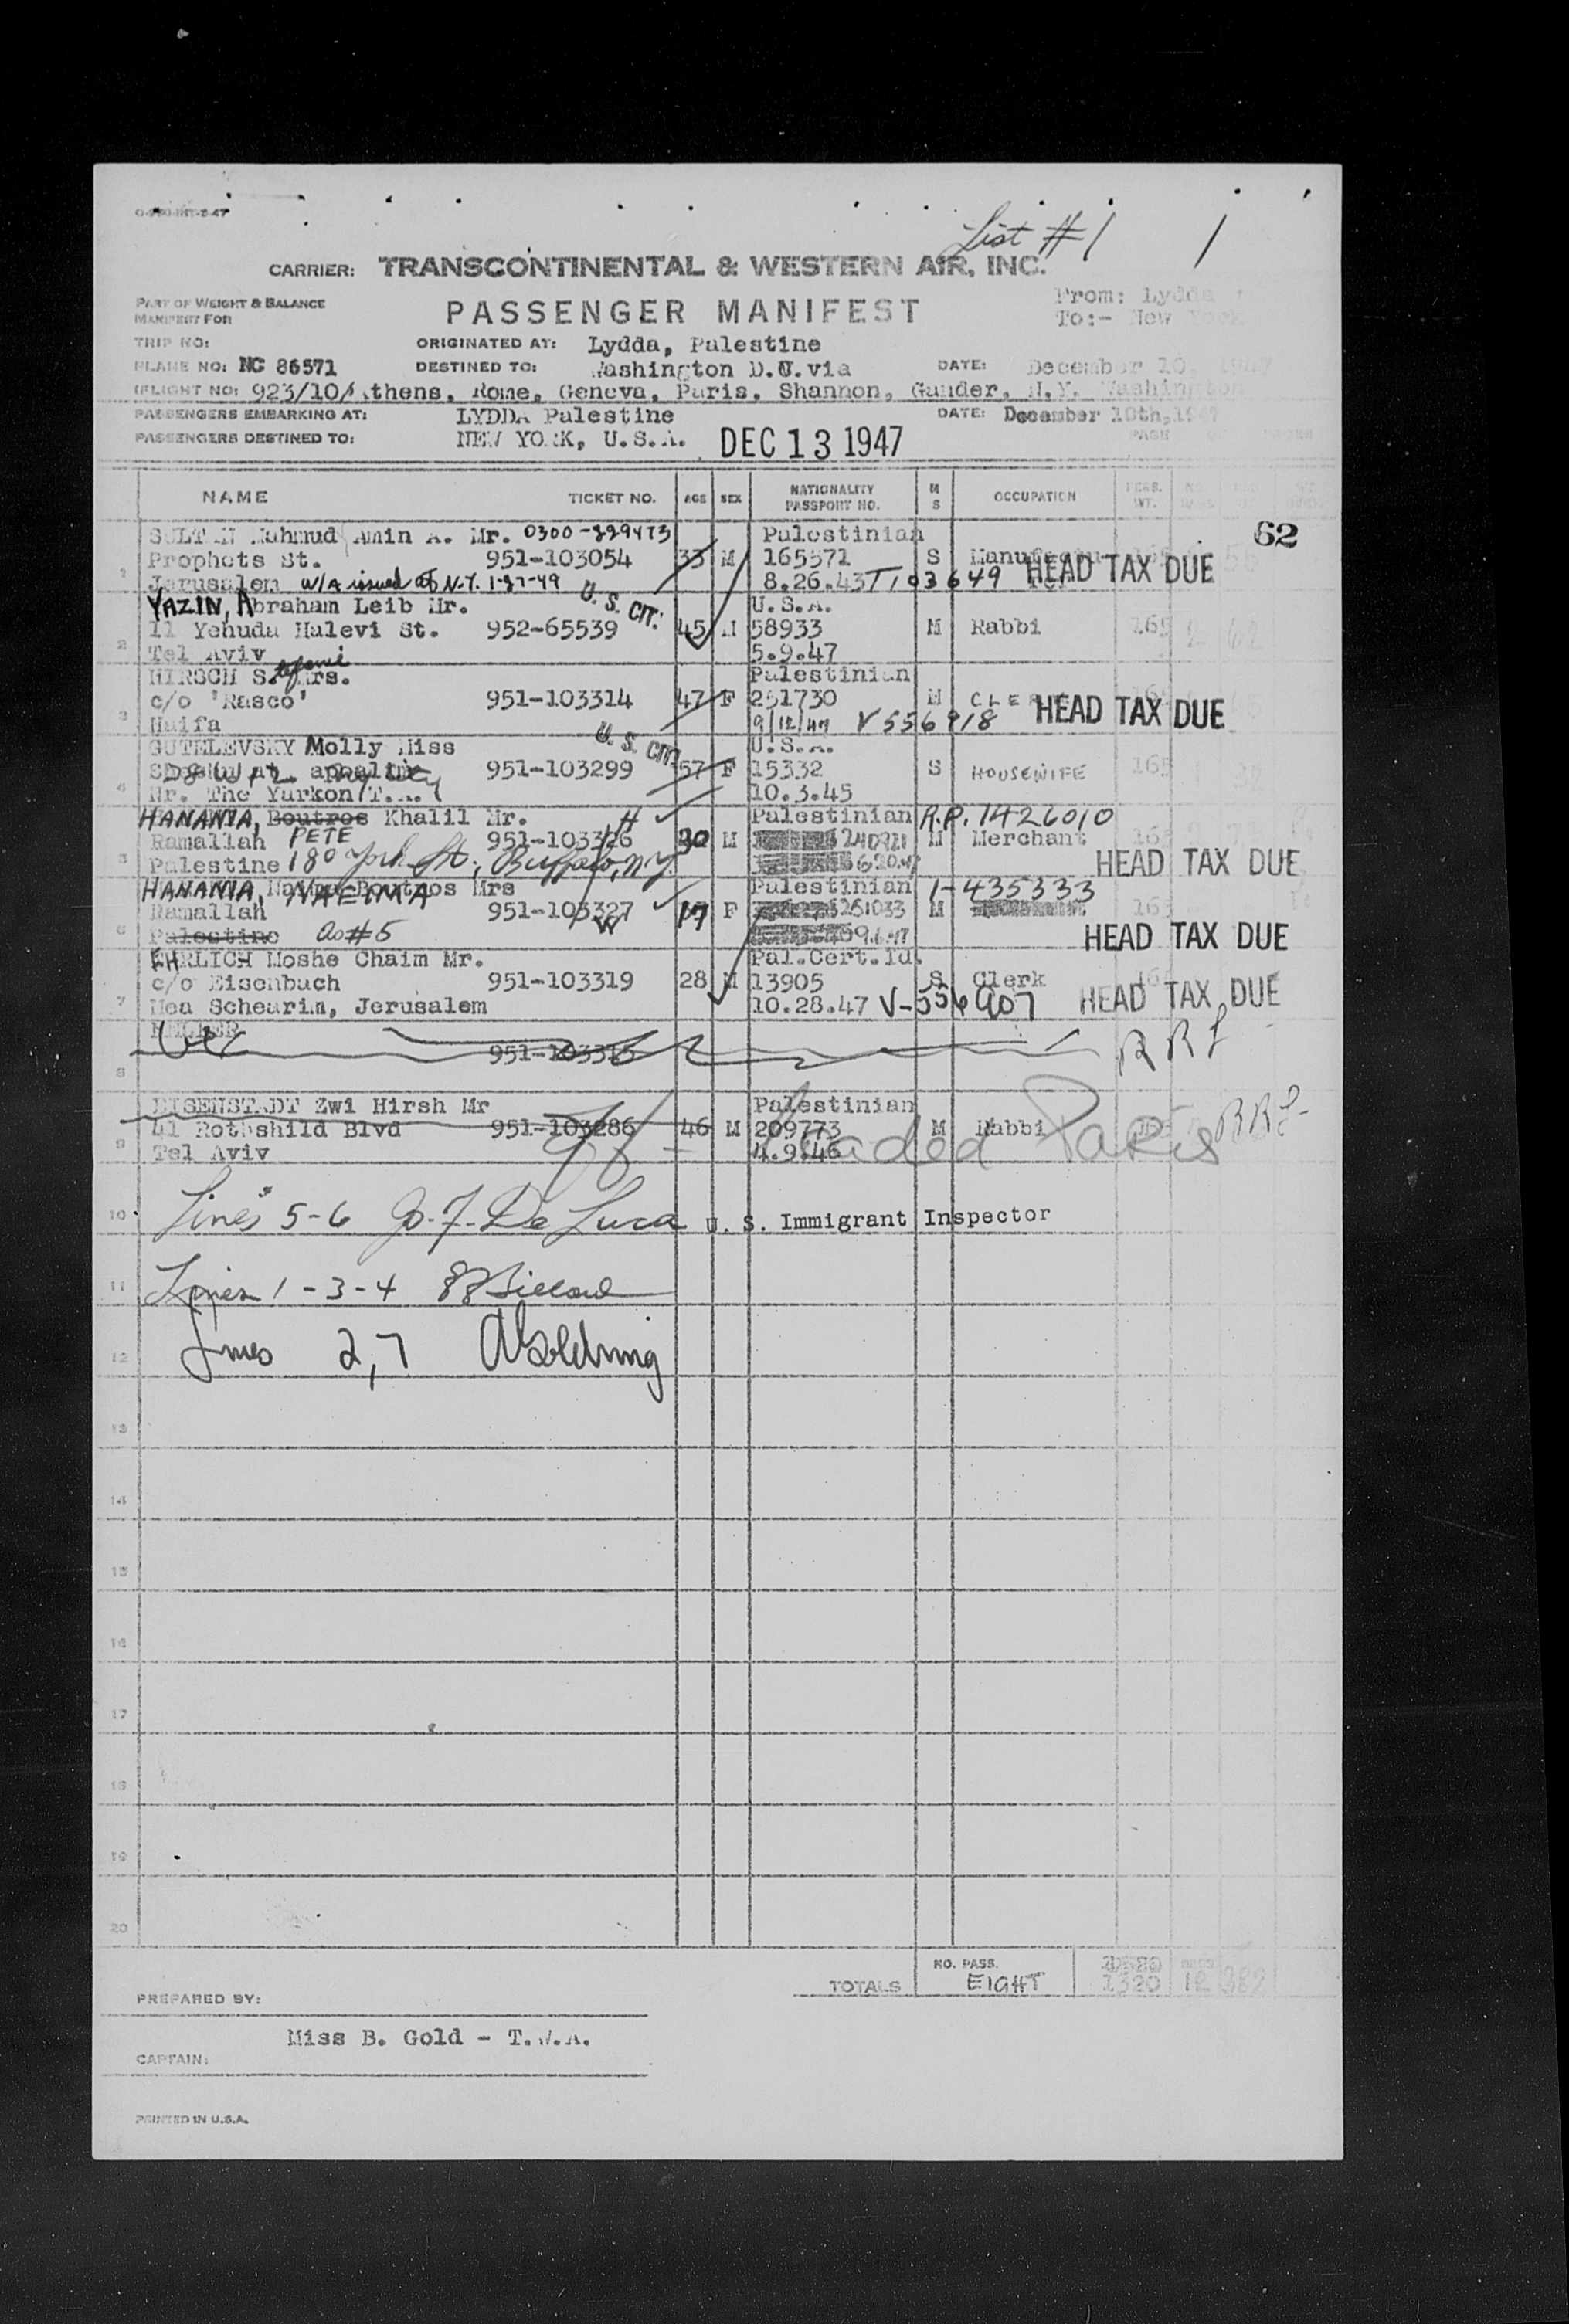 List #1 1
CARRIER: TRANSCONTINENTAL & WESTERN AIR, INC.
PART OF WEIGHT & BALANCE
MANIFEST FOR
PASSENGER MANIFEST
From: Lydda
To:- New York
TRIP NO:
ORIGINATED AT: Lydda, Palestine
PLANE NO: NC 86571 DESTINED TO: Washington D.C. via DATE: December 10, 1947
FLIGHT NO: 923/10/ Athens, Rome, Geneva, Paris, Shannon, Gander, N.Y. Washington
PASSENGERS EMBARKING AT: LYDDA Palestine DATE: December 10th, 1947
PASSENGERS DESTINED TO: NEW YORK, U.S.A. DEC 13 1947 PAGE
NAME TICKET NO. AGE SEX NATIONALITY PASSPORT NO. M S OCCUPATION PERS. WT.
62
SULTAN Mahmud Amin A. Mr. 0300-329473 Palestinian
Prophets St. 951-103054 33 M 165571 S
1 Jerusalem W/A issued at N.Y. 1-27-49 8.26.43 T103649 HEAD TAX DUE
YAZIN, Abraham Leib Mr. U.S. CIT. U.S.A.
11 Yehuda Halevi St. 952-65539 45 M 58933 M Rabbi 165
2 Tel Aviv 5.9.47
HIRSCH S. Mrs. Palestinian
c/o 'Rasco' 951-103314 47 F 251730 M CLERK
3 Haifa 9/12/47 V 556918 HEAD TAX DUE
GUTELEVSKY Molly Miss U.S. CIT. U.S.A.
951-103299 57 F 15332 S HOUSEWIFE 165
4 Nr. The Yarkon T.A. 10.3.45
HANANIA, Boutros Khalil Mr. H Palestinian R.P. 1426010
Ramallah PETE 951-103326 30 M 240921 M Merchant 165
5 Palestine 180 York St., Buffalo, N.Y. 6.20.47 HEAD TAX DUE
HANANIA, Naima Boutros Mrs NAEIMA Palestinian 1-435333
Ramallah 951-103327 W 17 F 251033 M 165
6 Palestine as #5 9.6.47 HEAD TAX DUE
EHRLICH Moshe Chaim Mr. Pal.Cert.Id.
c/o Eisenbach 951-103319 28 M 13905 S Clerk 165
7 Mea Schearim, Jerusalem 10.28.47 V-556907 HEAD TAX DUE
8 951-103315 RRL
EISENSTADT Zwi Hirsh Mr Palestinian
41 Rothshild Blvd 951-103286 46 M 209773 M Rabbi RRL
9 Tel Aviv 4.9.46 Off - Loaded Paris
10 Lines 5-6 De Luca U. S. Immigrant Inspector
11 Lines 1-3-4
12 Lines 2,7
13
14
15
16
17
18
19
20
TOTALS NO. PASS. EIGHT 1320 12 382
PREPARED BY:
Miss B. Gold - T.W.A.
CAPTAIN:
PRINTED IN U.S.A.